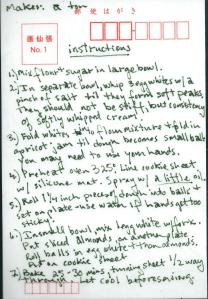 Makes: 2 ton
郵便はがき
唐仙張
No. 1
instructions
1.) Mix flour & sugar in large bowl.
2.) In separate bowl, whip 2 egg whites w/ a
pinch of salt til you get soft peaks.
You should not be stiff, but consistency
of softly whipped cream!
3.) Fold whites into flour mixture & fold in
apricot jam til dough becomes small balls
you may need to use your hands.
4.) Preheat oven 325°. Line cookie sheet
w/ silicone mat. Spray w/ a little oil.
5.) Roll 1 1/4 inch pieces of dough into balls &
set on plate - use water if hands get too
sticky.
6.) In small bowl mix 1 egg white w/ fork.
Put sliced almonds on another plate.
Roll balls in egg white & then almonds.
Put on cookie sheet
7.) Bake 25-30 mins, turning sheet 1/2 way
through. Let cool before serving.